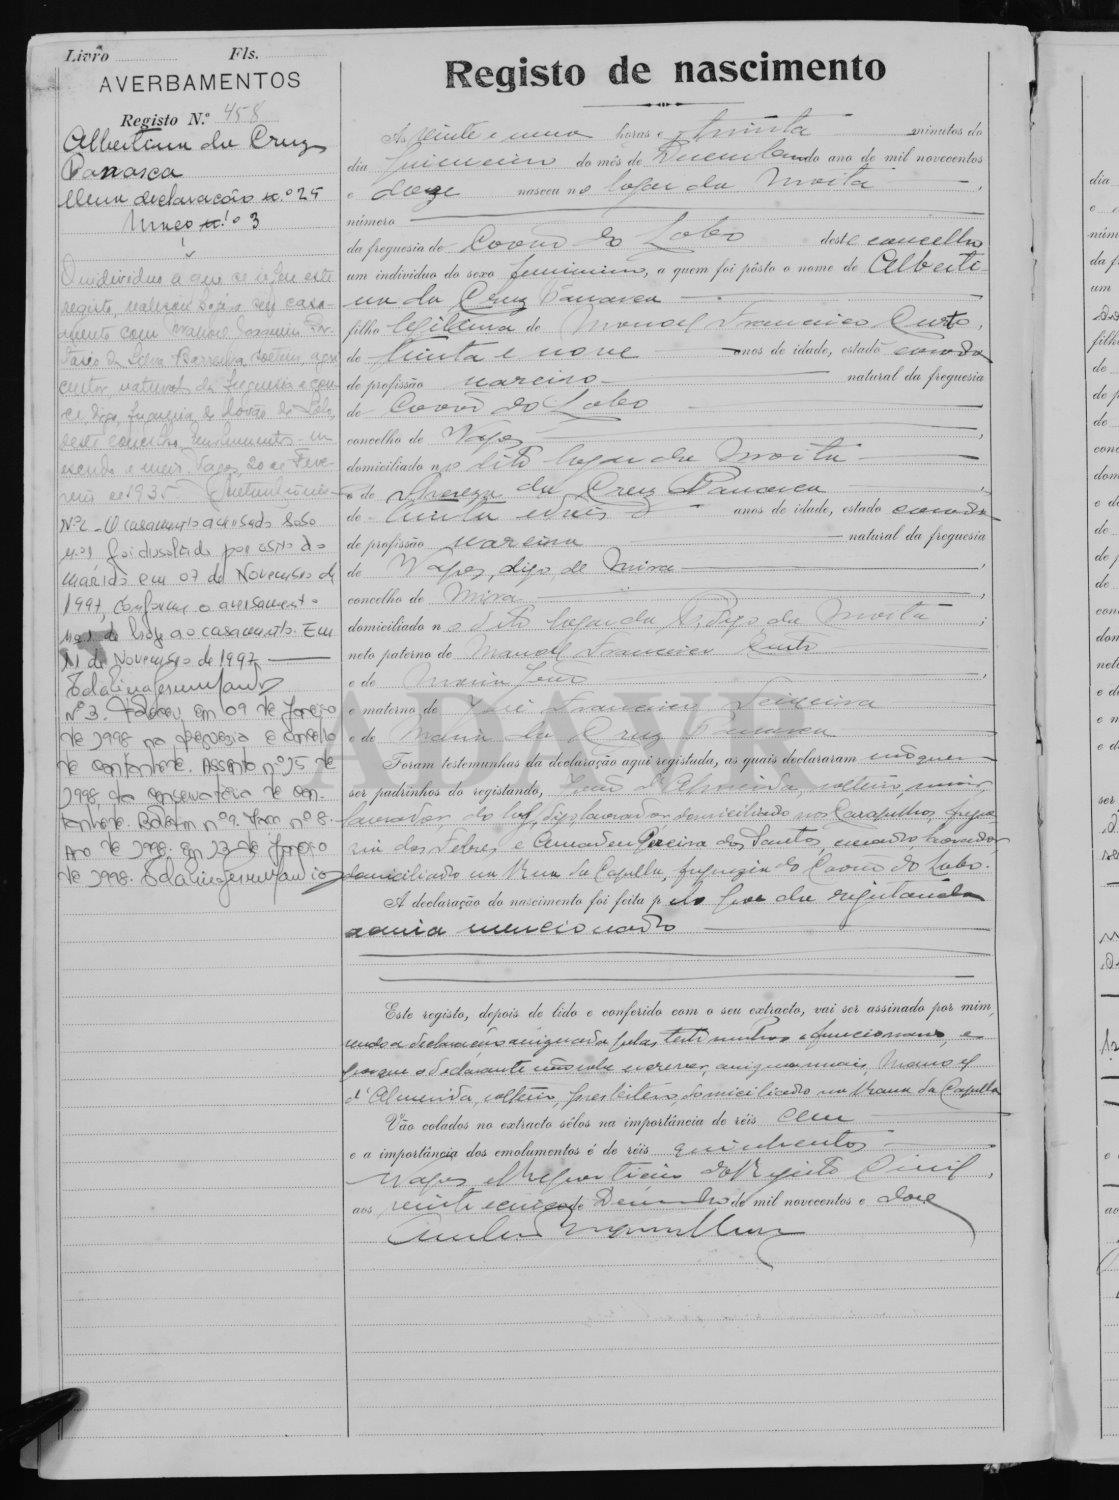 Livro Fls.
AVERBAMENTOS
Registo N.º 458
Albertina da Cruz
Panasca
Uma declaração n.º 25
Maço n.º 3
1
O individuo a que se refere este
registo, realisou hoje o seu casa-
mento com Manoel Joaquim
da Silva solteiro, agri
cultor, natural da freguesia e con-
ce, digo, freguesia de Covão do Lobo,
deste concelho.
Vagos, 20 de Feve-
reiro de 1935
Nº2 - O casamento averbado sob o
nº1 foi dissolvido por óbito do
marido em 07 de Novembro de
1997, conforme o averbamento
nº1 de hoje ao casamento. Em
11 de Novembro de 1997
Nº 3. Faleceu em 09 de Janeiro
de 1998 na freguesia e concelho
de Cantanhede. Assento nº 15 de
1998, da Conservatória de Can-
tanhede. Boletim nº 9. Maço nº 8.
Ano de 1998. Em 13 de Janeiro
de 1998.
Registo de nascimento
Ás vinte e uma horas e trinta minutos do
dia primeiro do mês de Dezembro do ano de mil novecentos
e doze nasceu no logar da Moita,
número
da freguesia de Covão do Lobo deste concelho
um individuo do sexo feminino, a quem foi pôsto o nome de Alberti-
na da Cruz Panasca
filho legitima de Manoel Francisco Custo,
de trinta e nove anos de idade, estado casado
de profissão natural da freguesia
de Covão do Lobo
concelho de Vagos,
domiciliado no dito logar da Moita
e de Thereza da Cruz Panasca
de trinta e seis anos de idade, estado casada
de profissão natural da freguesia
de Vagos, digo, de Mira,
concelho de Mira,
domiciliado no dito logar da, digo da Moita;
neto paterno de Manoel Francisco Custo
e de Maria
e materno de José Francisco Teixeira
e de Maria da Cruz Panasca
Foram testemunhas da declaração aqui registada, as quais declararam não querer
ser padrinhos do registando, João d'Almeida, solteiro, maior,
lavrador, do log, digo, lavrador domiciliado nos Carapelhos, fregue
sia dos Febres, e Amadeu Pereira dos Santos, casado, lavrador
domiciliado na da Capella, freguezia do Covão do Lobo.
A declaração do nascimento foi feita pelo pae da registanda
acima mencionado
Este registo, depois de lido e conferido com o seu extracto, vai ser assinado por mim,
sendo a declaração assignada pelas testemunhas e funcionario, e
porque o declarante não sabe escrever, assignou mais, Manoel
d'Almeida, solteiro, presbitero, domiciliado na da Capella
Vão colados no extracto sêlos na importância de réis cem
e a importância dos emolumentos é de réis quinhentos
Vagos e Repartição do Registo Civil,
aos vinte e cinco de Dezembro de mil novecentos e doze
ADAVR